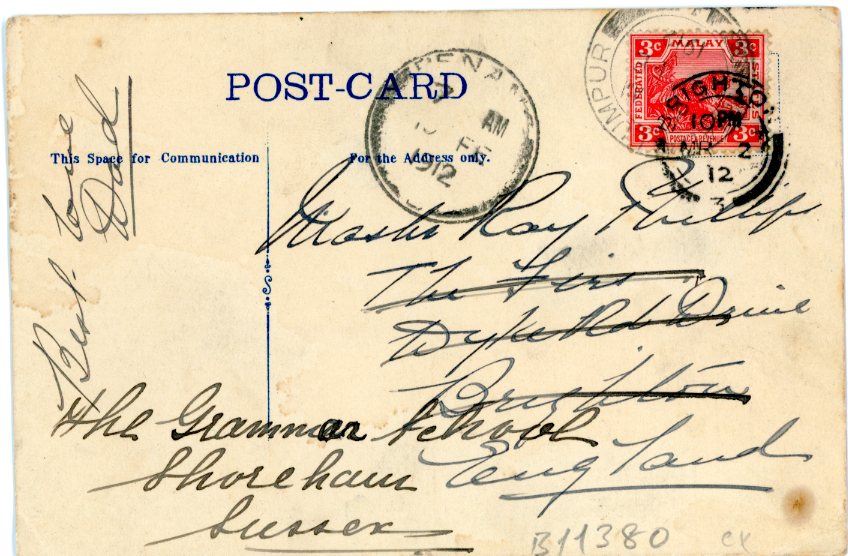 POST-CARD
This Space for Communication
For the Address only.
Best love
Dad
PENANG
AM
FE
1912
IMPUR
3c MALAY 3c
FEDERATED STATES
3c POSTAGE & REVENUE 3c
BRIGHTON
10 PM
MR 2
12
3
Master Ray Phillips
The Firs
Dyke Rd Drive
Brighton
England
The Grammar School
Shoreham
Sussex
B11380 cx